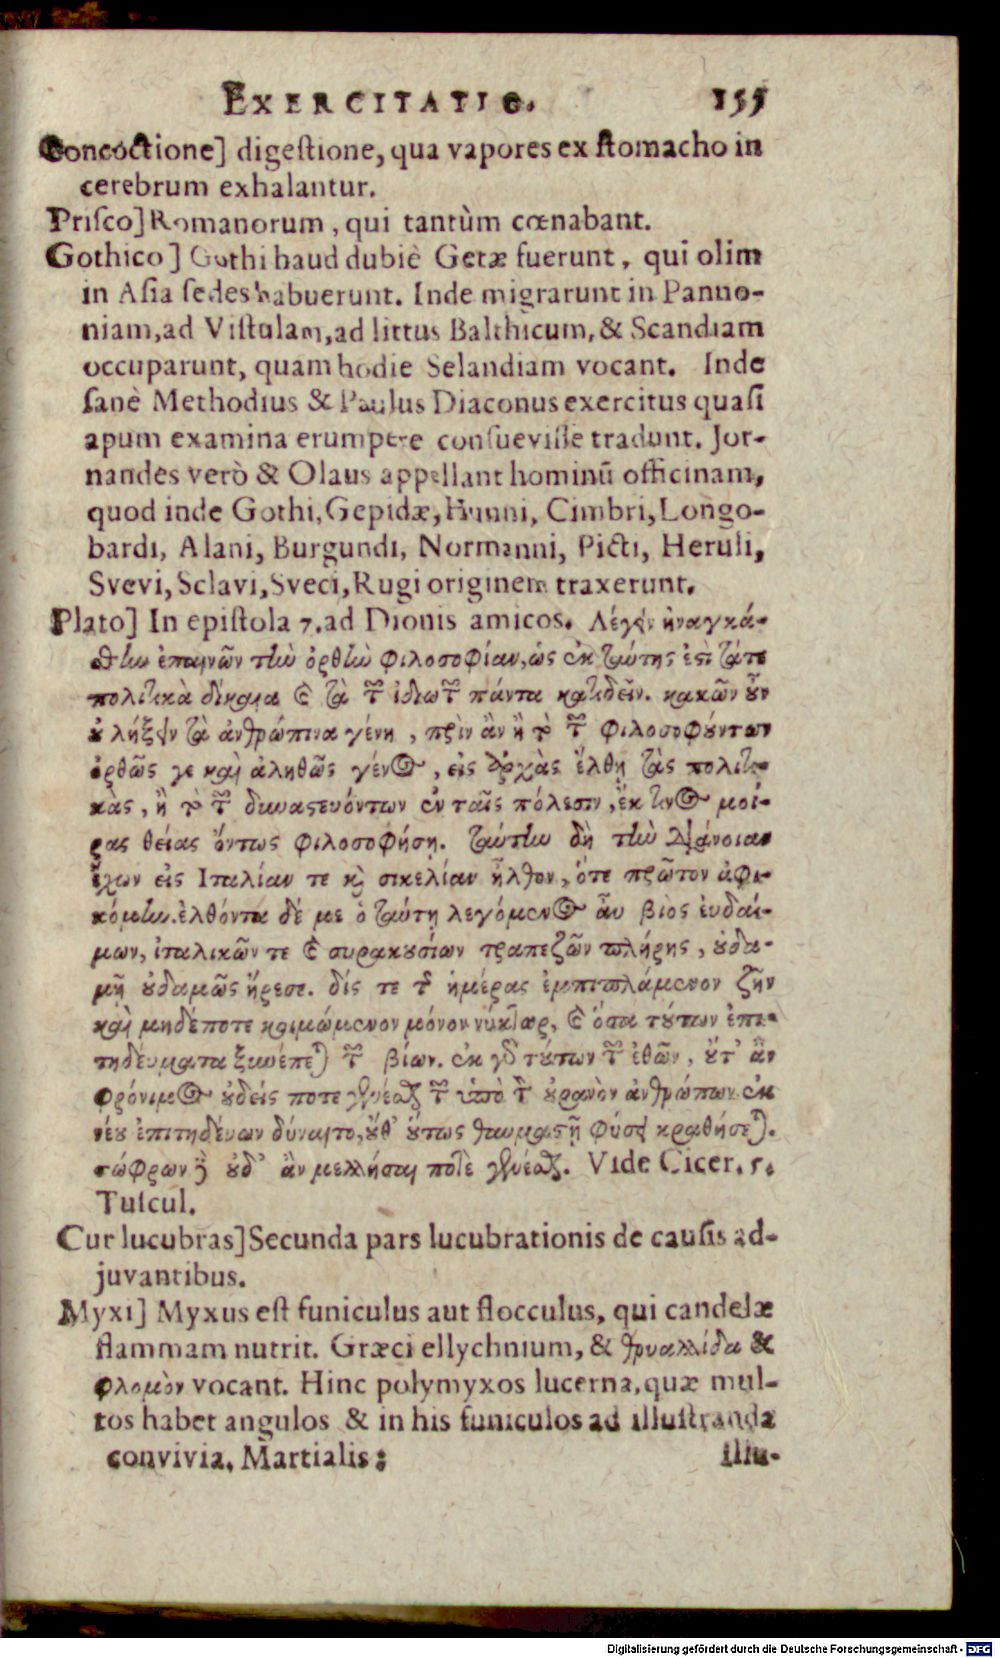 EXERCITATIO. 155
Concoctione] digestione, qua vapores ex stomacho in
cerebrum exhalantur.
Prisco] Romanorum, qui tantùm cœnabant.
Gothico] Gothi haud dubiè Getæ fuerunt, qui olim
in Asia sedes habuerunt. Inde migrarunt in Panno-
niam, ad Vistulam, ad littus Balthicum, & Scandiam
occuparunt, quam hodie Selandiam vocant. Inde
sanè Methodius & Paulus Diaconus exercitus quasi
apum examina erumpere consuevisse tradunt. Jor-
nandes verò & Olaus appellant hominū officinam,
quod inde Gothi, Gepidæ, Hunni, Cimbri, Longo-
bardi, Alani, Burgundi, Normanni, Picti, Heruli,
Svevi, Sclavi, Sveci, Rugi originem traxerunt.
Plato] In epistola 7. ad Dionis amicos. Λέγειν ἠναγκά-
σθην ἐπαινῶν τὴν ὀρθὴν φιλοσοφίαν, ὡς ἐκ ταύτης ἐστὶ τάτε
πολιτικὰ δίκαια καὶ τὰ τῶν ἰδιωτῶν πάντα κατιδεῖν. κακῶν οὖν
οὐ λήξειν τὰ ἀνθρώπινα γένη, πρὶν ἂν ἢ τὸ τῶν φιλοσοφούντων
ὀρθῶς γε καὶ ἀληθῶς γένος, εἰς ἀρχὰς ἔλθῃ τὰς πολιτι-
κὰς, ἢ τὸ τῶν δυναστευόντων ἐν ταῖς πόλεσιν, ἔκ τινος μοί-
ρας θείας ὄντως φιλοσοφήσῃ. ταύτην δὴ τὴν διάνοιαν
ἔχων εἰς Ιταλίαν τε καὶ σικελίαν ἦλθον, ὅτε πρῶτον ἀφι-
κόμην. ἐλθόντα δέ με ὁ ταύτῃ λεγόμενος αὖ βίος ἐυδαί-
μων, ἰταλικῶν τε καὶ συρακουσίων τραπεζῶν πλήρης, οὐδα-
μῆ οὐδαμῶς ἤρεσε. δίς τε τῆς ἡμέρας ἐμπιπλάμενον ζῆν
καὶ μηδέποτε κοιμώμενον μόνον νύκτωρ, καὶ ὅσα τούτων ἐπι-
τηδεύματα ξυνέπεται τῶν βίων. ἐκ γὰρ τούτων τῶν ἐθῶν, οὔτ' ἂν
φρόνιμος οὐδείς ποτε γενέσθαι τῶν ὑπὸ τὸν οὐρανὸν ἀνθρώπων ἐκ
νέου ἐπιτηδεύων δύναιτο, οὐθ' οὕτως θαυμαστῇ φύσει κραθήσεται.
σώφρων δὲ οὐδ' ἂν μελλήσαι ποτὲ γενέσθαι. Vide Cicer. 5.
Tuscul.
Cur lucubras] Secunda pars lucubrationis de causis ad-
juvantibus.
Myxi] Myxus est funiculus aut flocculus, qui candelæ
flammam nutrit. Græci ellychnium, & θρυαλλίδα &
φλομὸν vocant. Hinc polymyxos lucerna, quæ mul-
tos habet angulos & in his funiculos ad illustranda
convivia. Martialis:
illu-
Digitalisierung gefördert durch die Deutsche Forschungsgemeinschaft - DFG